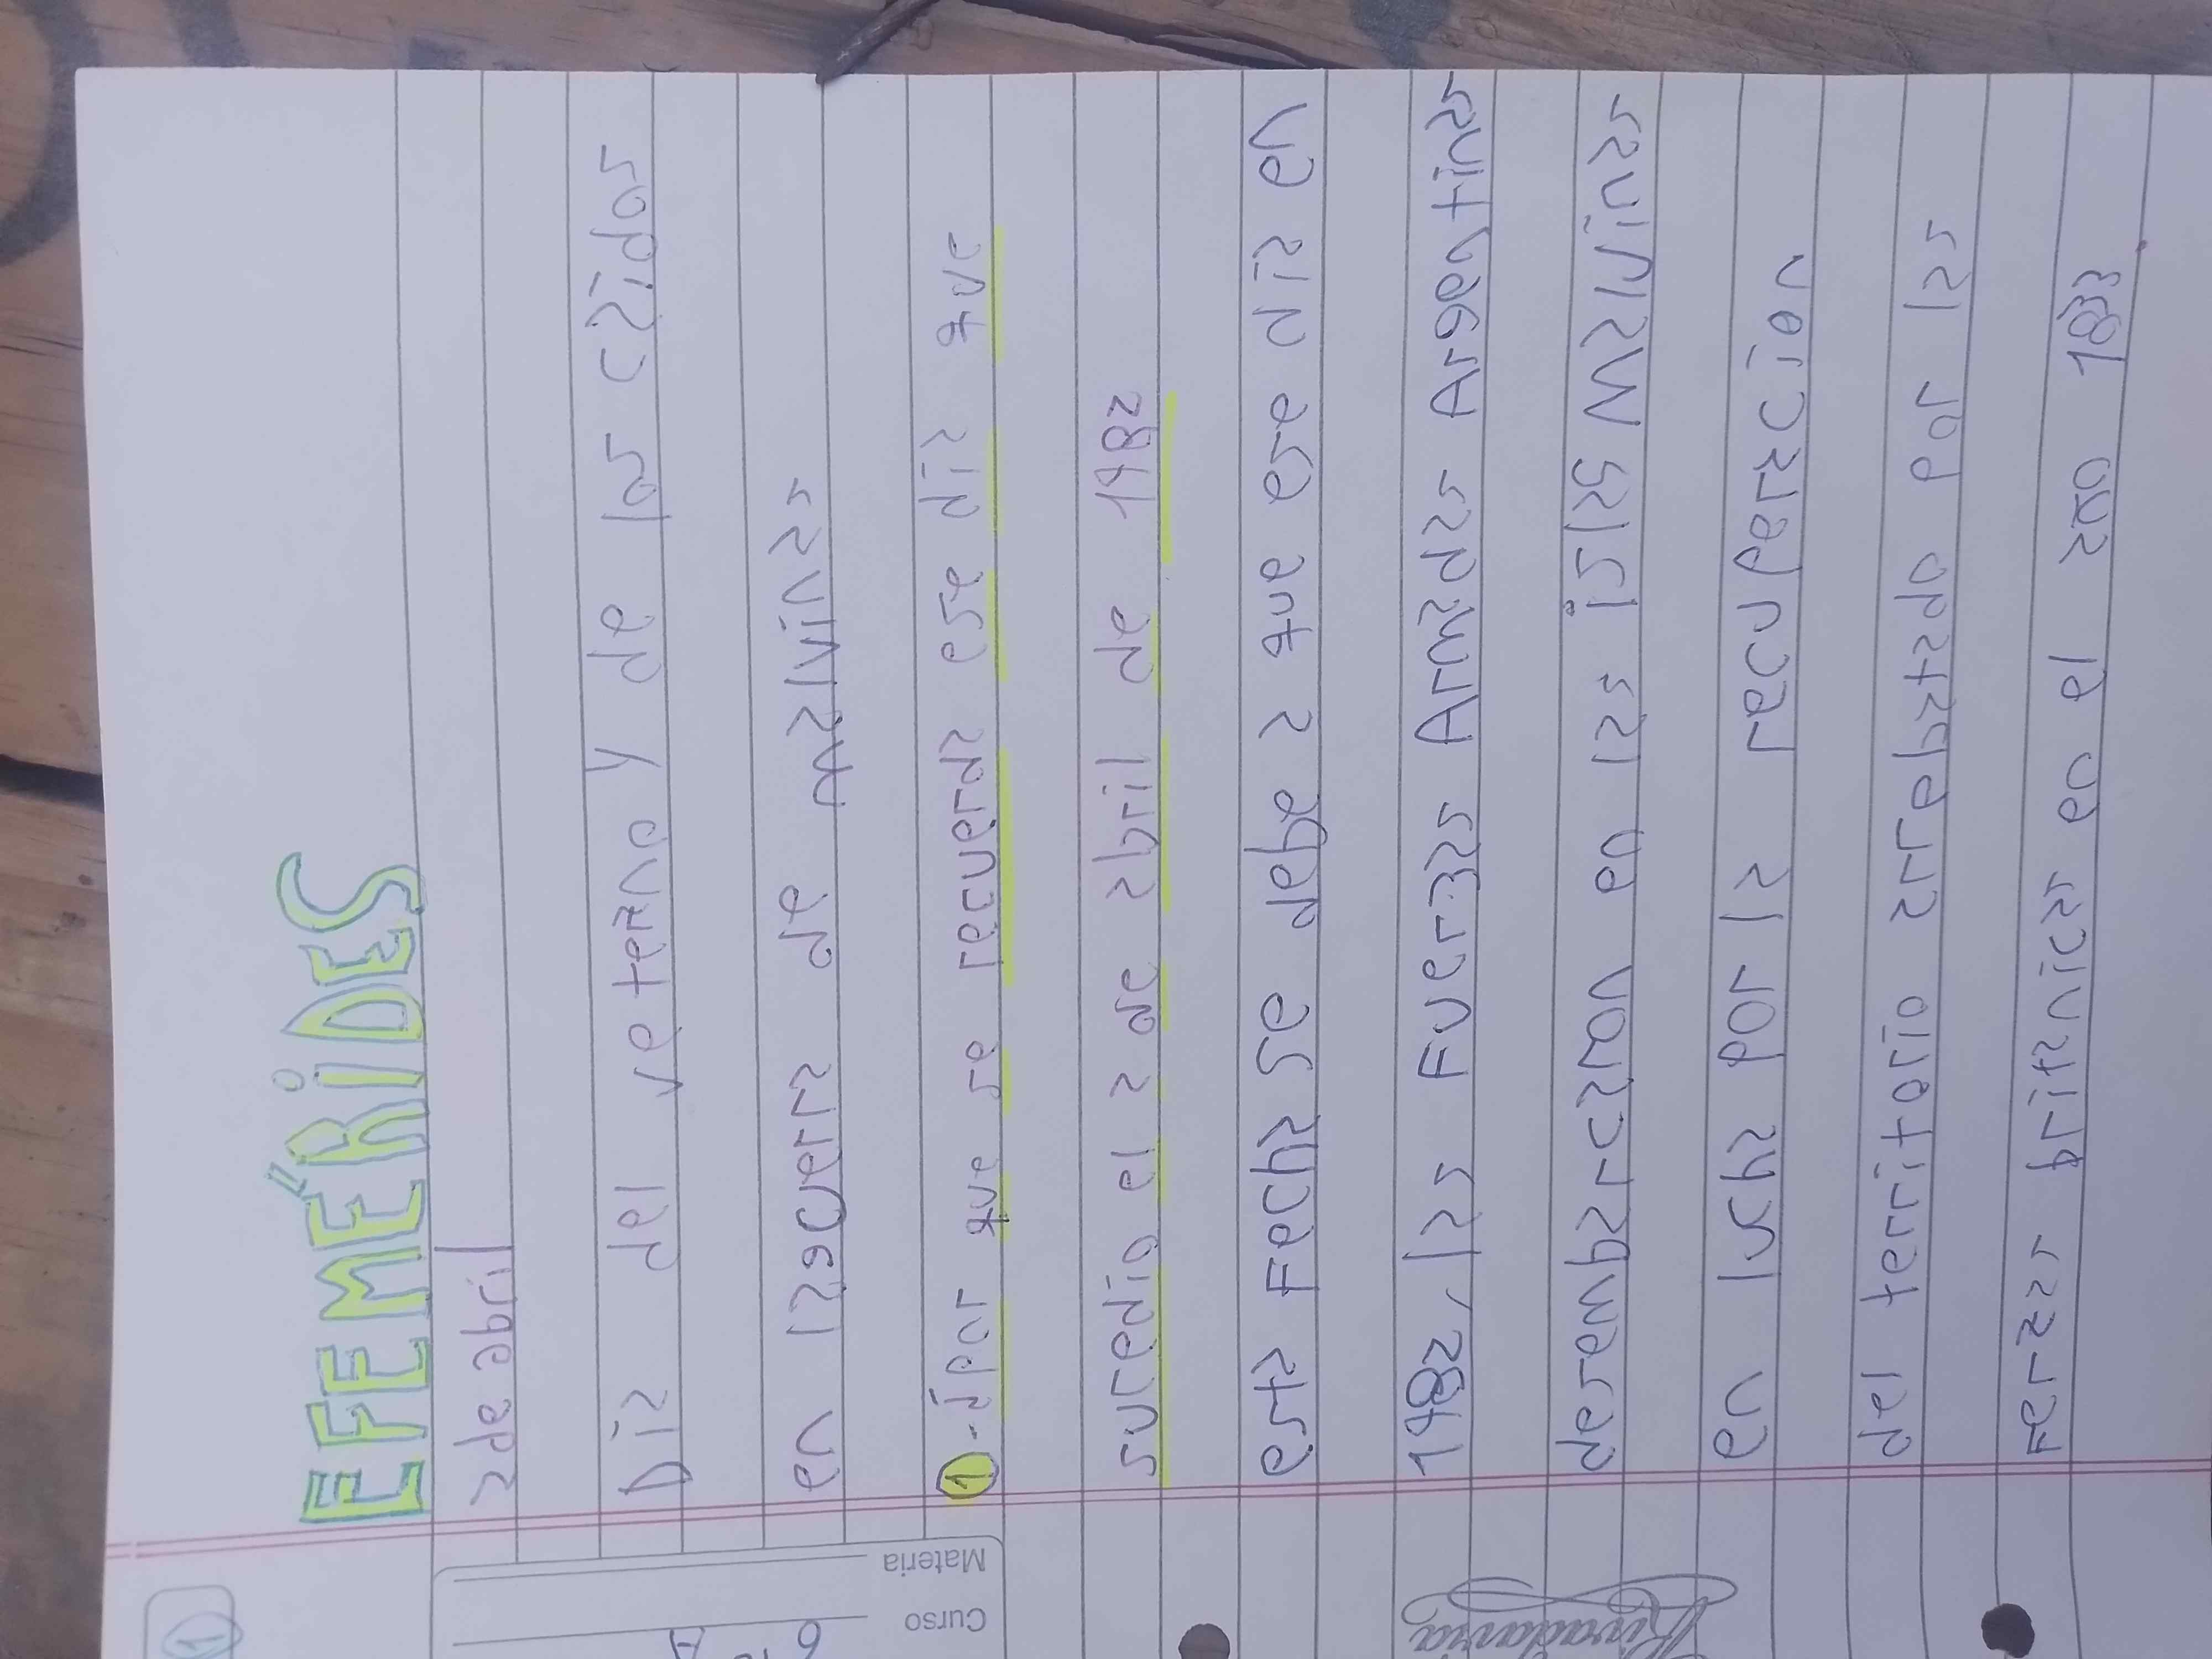 EFEMÉRiDES
2 de abril
Día del veterano y de los caídos
en la guerra de malvinas
1-¿por que se recuerda ese día que
sucedio el 2 de abril de 1982
esta Fecha se debe a que ese día en
1982, las Fuerzas Armadas Argentinas
desembarcaron en las islas Malvinas
en lucha por la recuperación
del territorio arrebatado por las
Ferzas británicas en el año 1833.
Materia
Curso
6 to A
Rivadavia
1